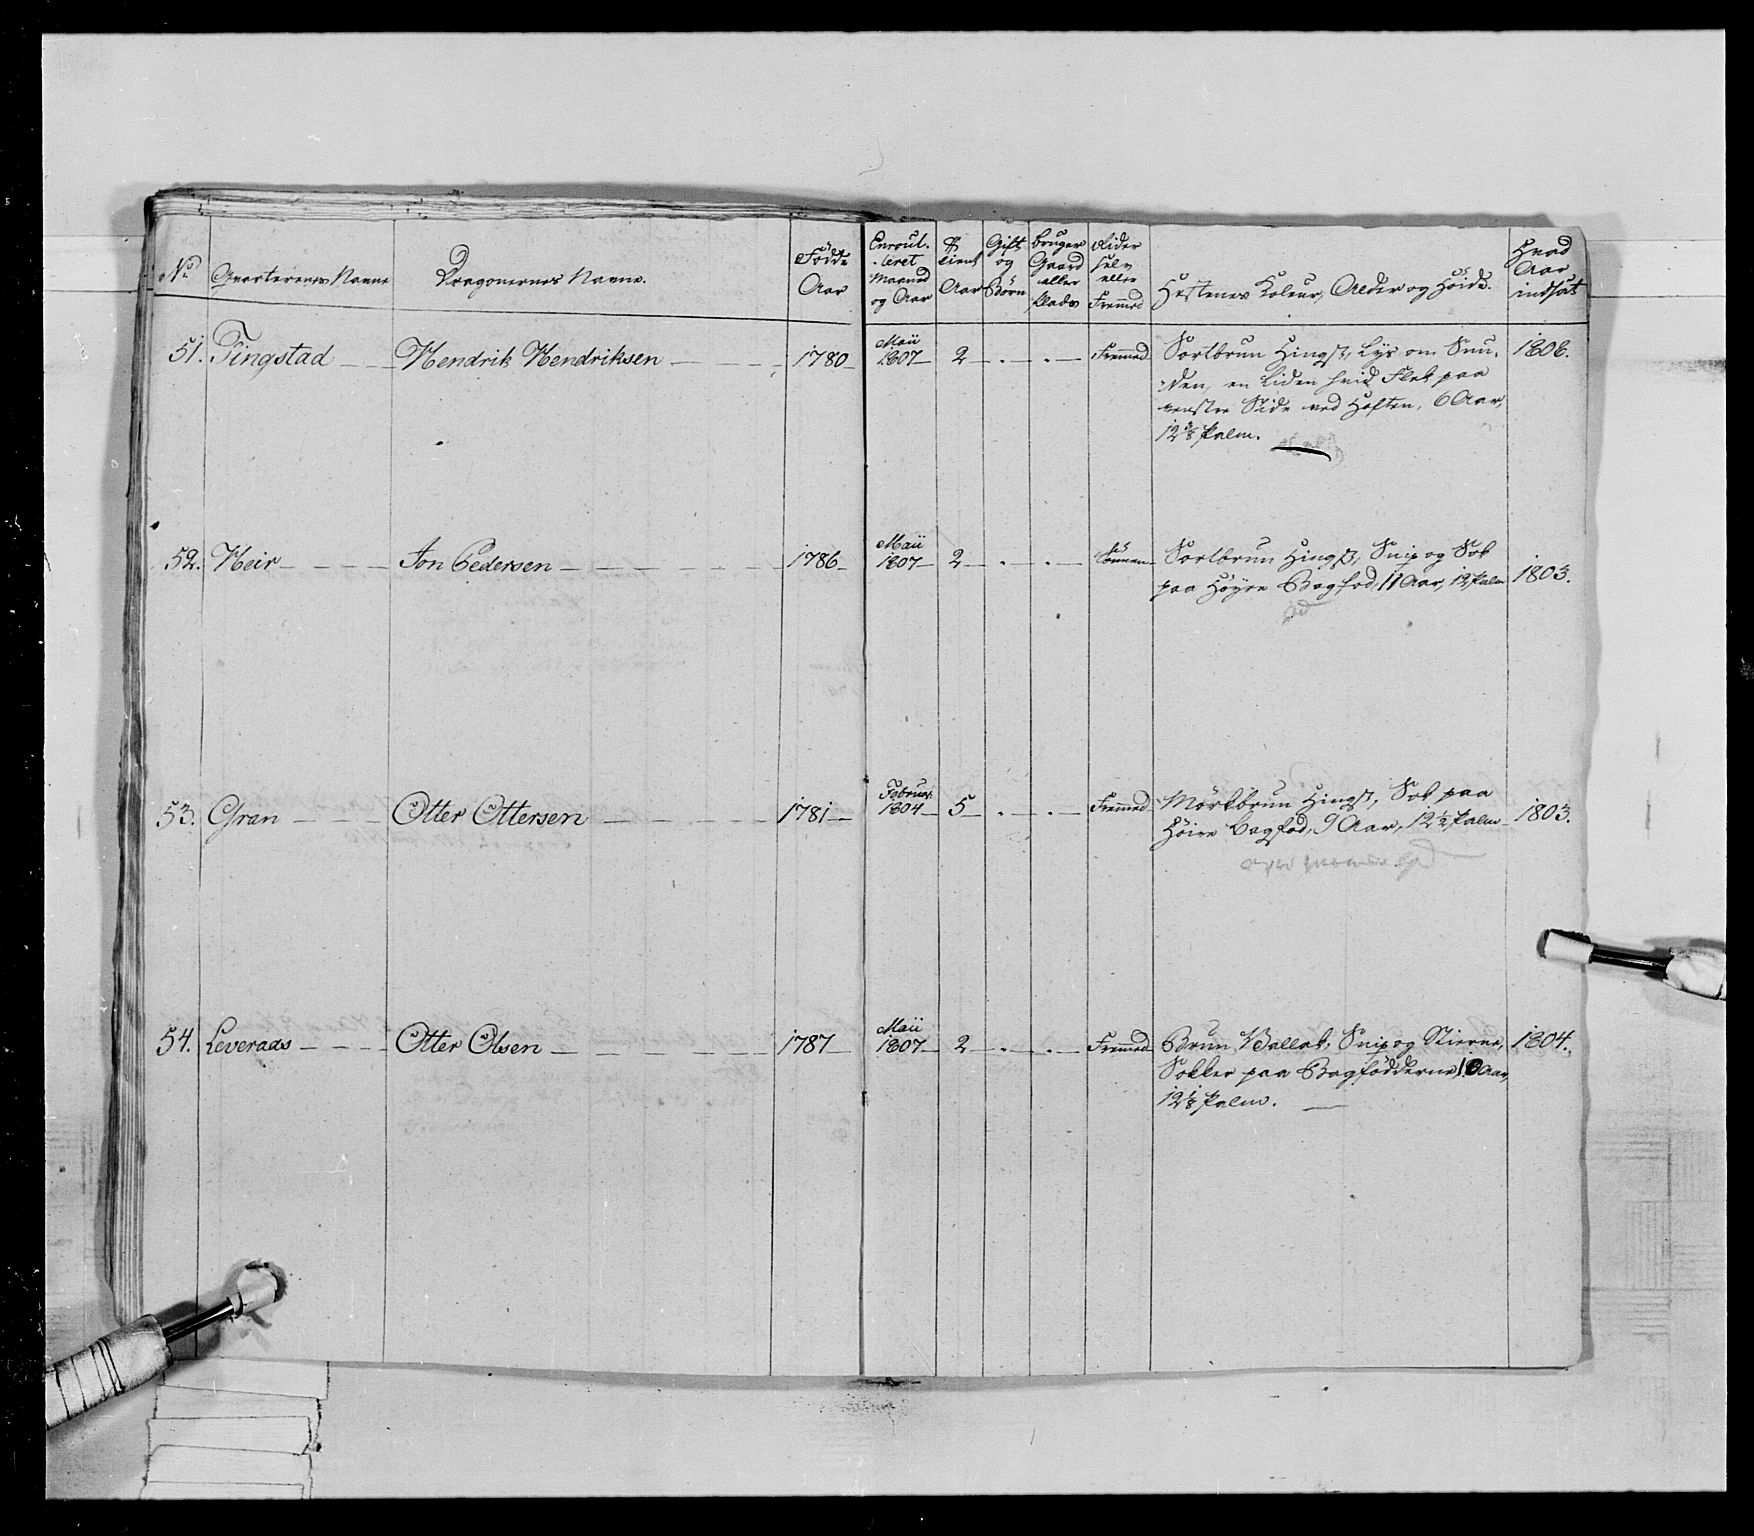 No
Qvarterenes Navne
Dragonernes Navne.
Fødde
Aar
Enroul-
leret
Maaned
og Aar
tient
Aar
Gift
og
Børn
bruger
Gaard
eller
Plads
Rider
selv
eller
Fremed
Hestenes Koleur, Alder og Høide.
Hvad
Aar
indsat
51. Tingstad — Hendrik Hendriksen — 1780 — Maii 1807 — 2 — . — . — Fremed
Sortbrun Hingst, Lys om Snu-
den, en liden hvid Flek paa
venstre Side ved Hoften, 6 Aar,
12 3/8 Palm.
1806.
52. Heir — Jon Pedersen — 1786 — Maii 1807 — 2 — . — .
Sortbrun Hingst, Snip og Sok
paa Høyre Bagfod, 11 Aar, 12 Palm
1803.
53. Gran — Otter Ottersen — 1781 — Februar 1804 — 5 — . — . — Fremed
Mörkbrun Hingst, Sok paa
Høire Bagfod, 9 Aar, 12 1/2 Palm
1803.
54. Leveraas — Otter Olsen — 1787 — Maii 1807 — 2 — . — . — Fremed
Brun Vallak, Snip og Stierne,
Sokker paa Bagfödderne, 10 Aar,
12 1/8 Palm.
1804.